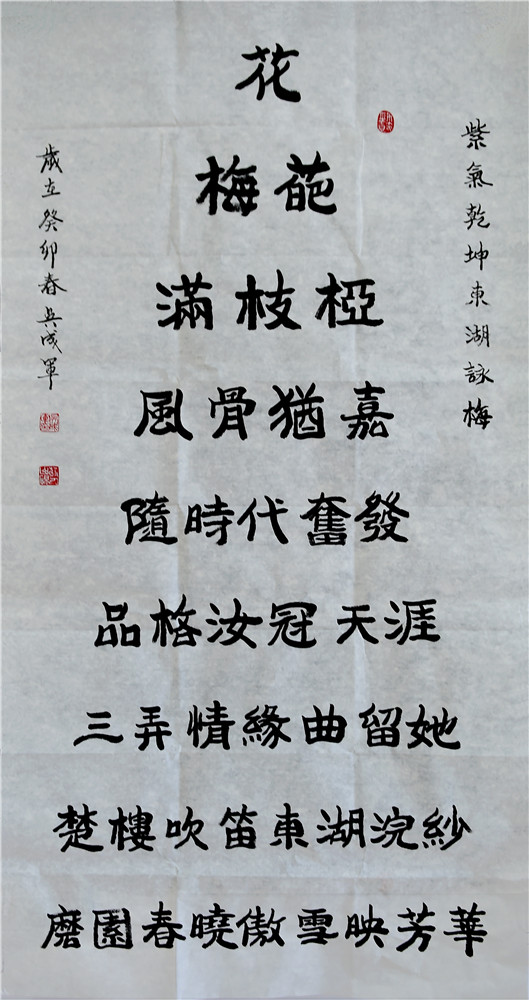 紫氣乾坤東湖詠梅
花
梅葩
滿枝椏
風骨猶嘉
隨時代奮發
品格汝冠天涯
三弄情緣曲留她
楚樓吹笛東湖浣紗
磨園春曉傲雪映芳華
歲在癸卯春吳成軍